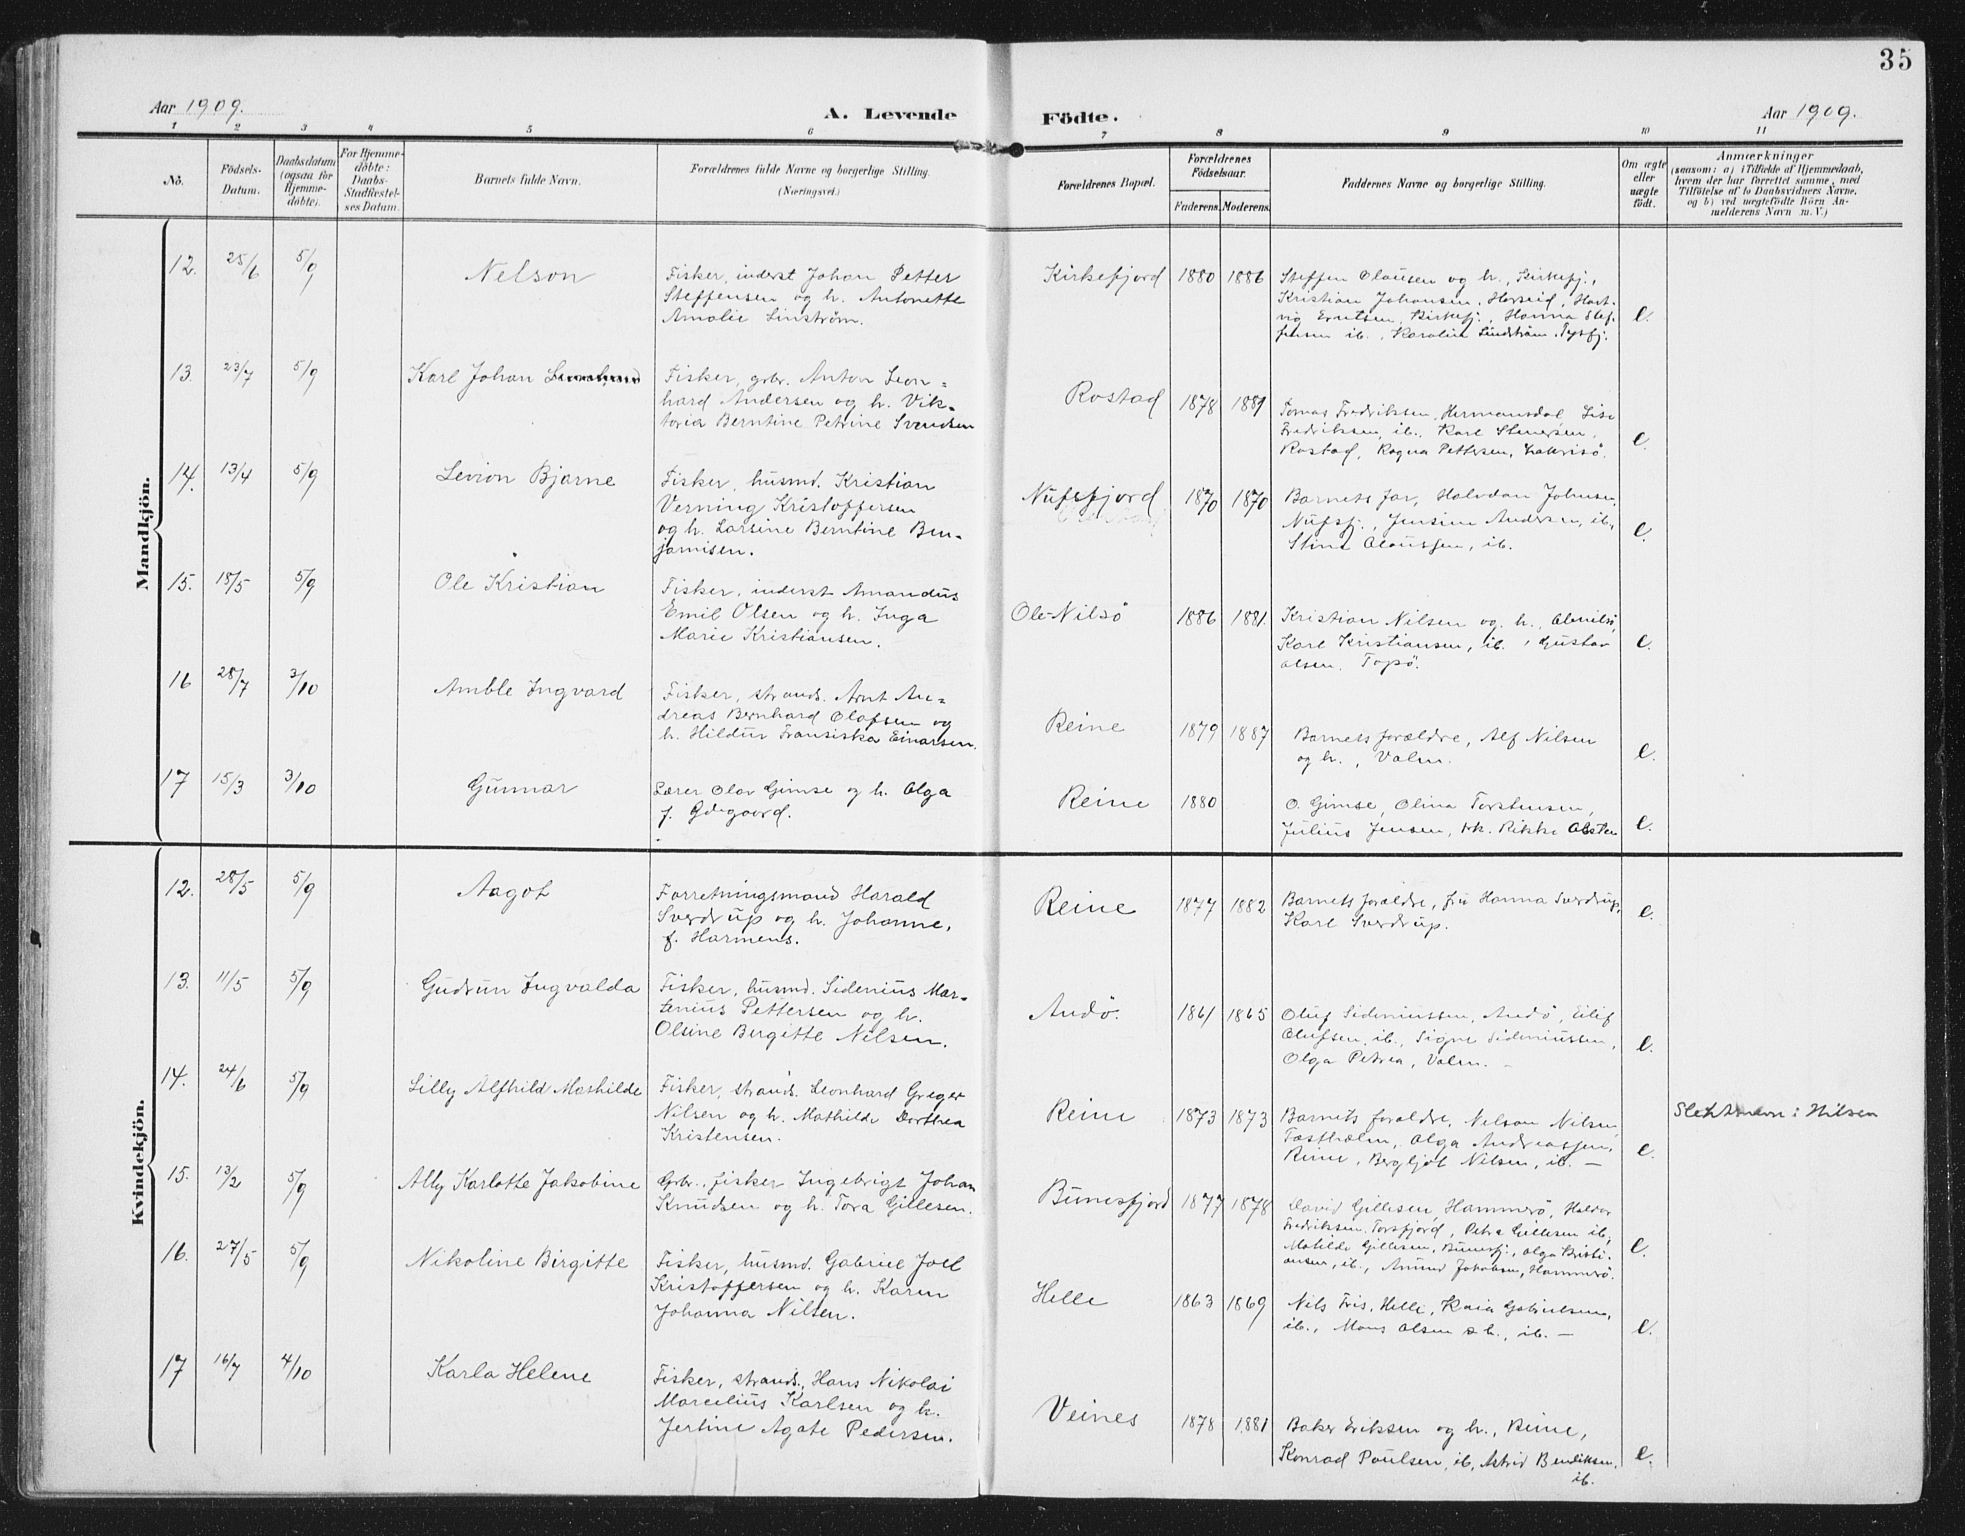 35
Aar 1909.
A. Levende
Födte.
Aar 1909.
1 2 3 4 5 6 7 8 9 10 11
No.
Födsels-
Datum.
Daabsdatum
(ogsaa for
Hjemme-
døbte).
For Hjemme-
döbte:
Daabs-
Stadfæstel-
ses Datum.
Barnets fulde Navn.
Forældrenes fulde Navne og borgerlige Stilling.
(Næringsvei.)
Forældrenes Bopæl.
Forældrenes
Födselsaar.
Faderens. Moderens.
Faddernes Navne og borgerlige Stilling.
Om ægte
eller
uægte
födt.
Anmærkninger
(saasom: a) i Tilfælde af Hjemmedaab,
hvem der har forrettet samme, med
Tilföielse af to Daabsvidners Navne,
og b) ved uægtefödte Börn An-
melderens Navn m. V.)
Mandkjön.
12. 25/6 5/9 Nelson
Fisker, inderst Johan Petter
Steffensen og h. Antonette
Amalie Linström.
Kirkefjord 1880 1886
Steffen Olausen og h., Kirkefj.,
Kristian Johansen, Horseid, Hart-
vig Erntsen, Kirkefj., Hanna Stef-
fensen ib., Karolin Lindström, Tysfj.
e.
13. 23/7 5/9 Karl Johan
Fisker, grbr. Anton Leon=
hard Andersen og h. Vik-
toria Berntine Petrine Svendsen
Rostad 1878 1881
Tomas Fredriksen, Hermansdal, Lise
Fredriksen, ib., Karl Stenersen,
Rostad, Ragna Pettersen,
e.
14. 13/4 5/9 Levion Bjarne
Fisker, husmd. Kristian
Verning Kristoffersen
og h. Larsine Berntine Ben-
jamisen.
Nufsfjord 1870 1870
Barnets far, Halvdan Johnsen,
Nufsfj., Jensine Andersen, ib.,
Stina Olaussen, ib.
e.
15. 18/5 5/9 Ole Kristian
Fisker, inderst Amandus
Emil Olsen og h. Inga
Marie Kristiansen.
Ole-Nilsö 1886 1881.
Kristian Nilsen og h., Olenilsö,
Karl Kristiansen, ib., Gustav
Olsen, Topö.
e.
16 28/7 3/10 Amble Ingvard
Fisker, strands. Arnt An=
dreas Bernhard Olafsen og
h. Hildur Fransiska Einarsen.
Reine 1879 1887
Barnets forældre, Alf Nilsen
og h., Valen.
e.
17 15/3 3/10 Gunnar
Lærer Olav Gimse og h. Olga
f. Ödegaard.
Reine 1880
O. Gimse, Olina Torstensen,
Julius Jensen, Rikke
e.
Kvindekjön.
12. 28/5 5/9 Aagot
Forretningsmand Harald
Sverdrup og h. Johanne,
f. Harmens.
Reine 1877 1882
Barnets forældre, fru Hanna Sverdrup,
Karl Sverdrup.
e.
13. 11/5 5/9 Gudrun Ingvalda
Fisker, husmd. Sidenius Mar-
tenius Pettersen og h.
Olsine Bergitte Nilsen.
Andö. 1861 1865
Oluf Sideniussen, Andö, Eilif
Olufsen, ib., Signe Sideniussen,
Olga Petrea, Valen. -
e.
14. 24/6 5/9 Lilly Alfhild Mathilde
Fisker, strands. Leonhard Greger
Nilsen og h. Mathilde Dorthea
Kristensen.
Reine 1873 1873
Barnets forældre, Nelson Nilsen
Olga Andreassen,
Reine, Bergljot Nilsen, ib. -
e.
Slektsnavn: Nilsen
15. 13/2 5/9 Ally Karlotte Jakobine
Grbr., fisker Ingebrigt Johan
Knudsen og h. Tora Gillesen.
Bunesfjord 1877 1878
David Gillesen, Hammerö, Haldor
Fredriksen, Torsfjord, Petra Gillesen ib.,
Matilde Gillesen, Bunesfj., Olga Kristi-
ansen, ib., Amund Jakobsen, Hammerö.
e.
16. 27/5 5/9 Nikoline Birgitte
Fisker, husmd. Gabriel Joel
Kristoffersen og h. Karen
Johanna Nilsen.
Helle 1863 1869
Nils Fris, Helle, Kaia Gabrielsen,
ib., Mons Olsen & h., ib. -
e.
17 16/7 4/10 Karla Helene
Fisker, strands., Hans Nikolai
Marcelius Karlsen og h.
Jertine Agate Pedersen.
Veines 1878 1881
Baker Eriksen og h., Reine,
Konrad Poulsen, ib, Astrid Bendiksen,
ib.
e.